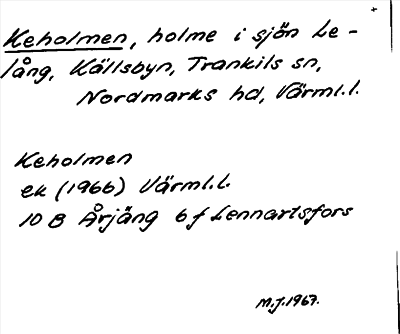 Keholmen, holme i sjön Le-
lång, Källsbyn, Trankils sn,
Nordmarks hd, Värml.l.
Keholmen
ek (1966) Värml.l.
10 B Årjäng 6 f Lennartsfors
M.J. 1967.